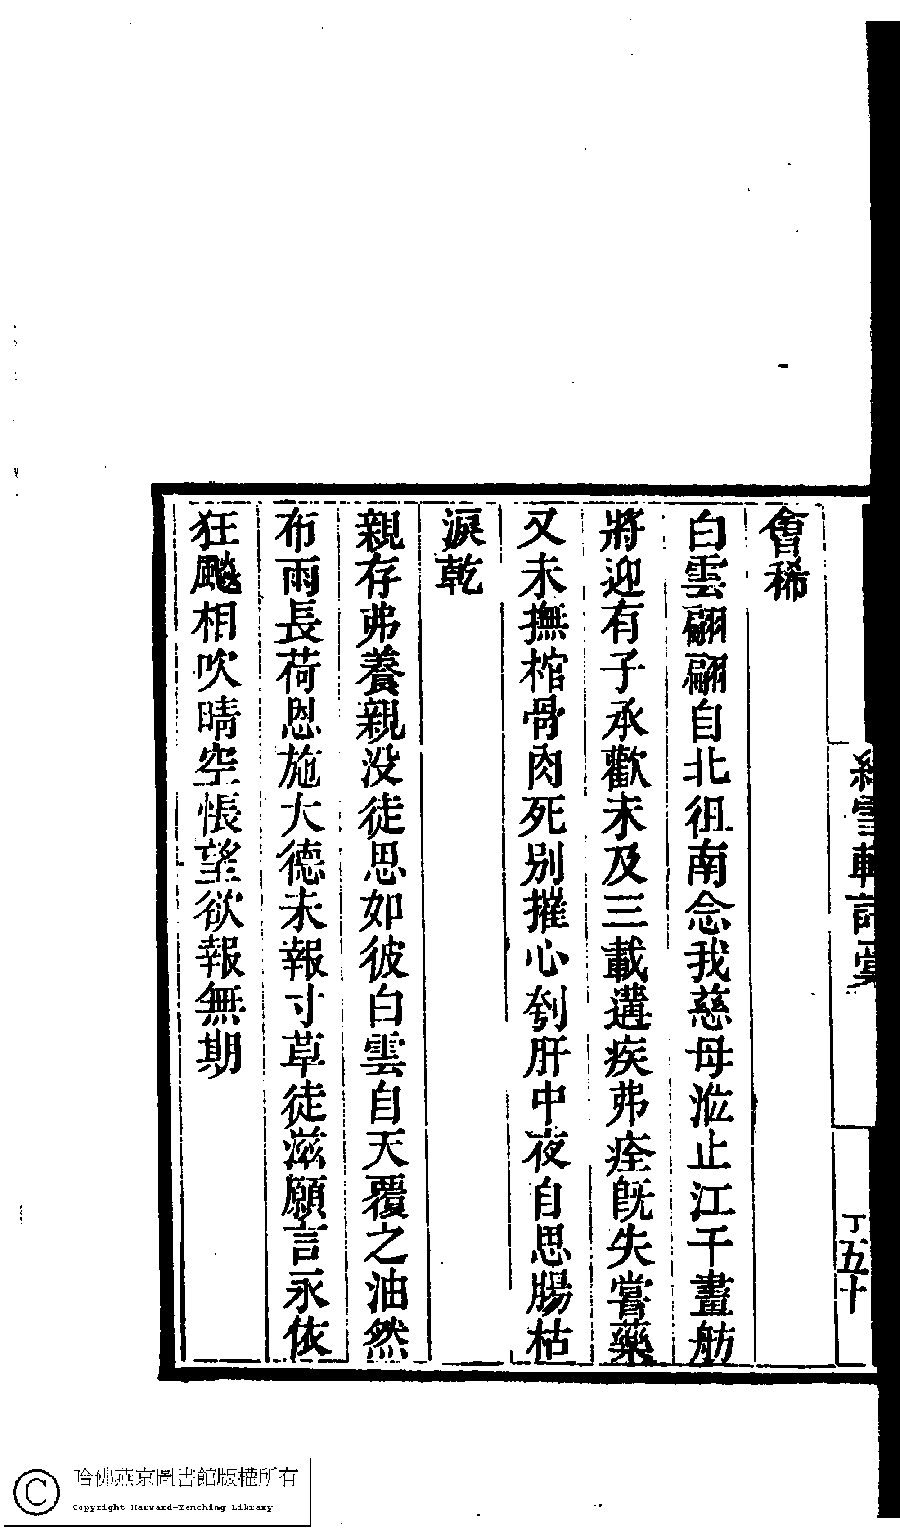 會稀
白雲翩翩自北徂南念我慈母涖止江干畫舫
將迎有子承歡未及三載遘疾弗痊旣失嘗藥
又未撫棺骨肉死別摧心刳肝中夜自思腸枯
淚乾
親存弗養親没徒思如彼白雲自天覆之油然
布雨長荷恩施大德未報寸草徒滋願言永依
狂飈相吹晴空悵望欲報無期
雪軒
丁五十
哈佛燕京圖書館版權所有
Copyright Harvard-Yenching Library